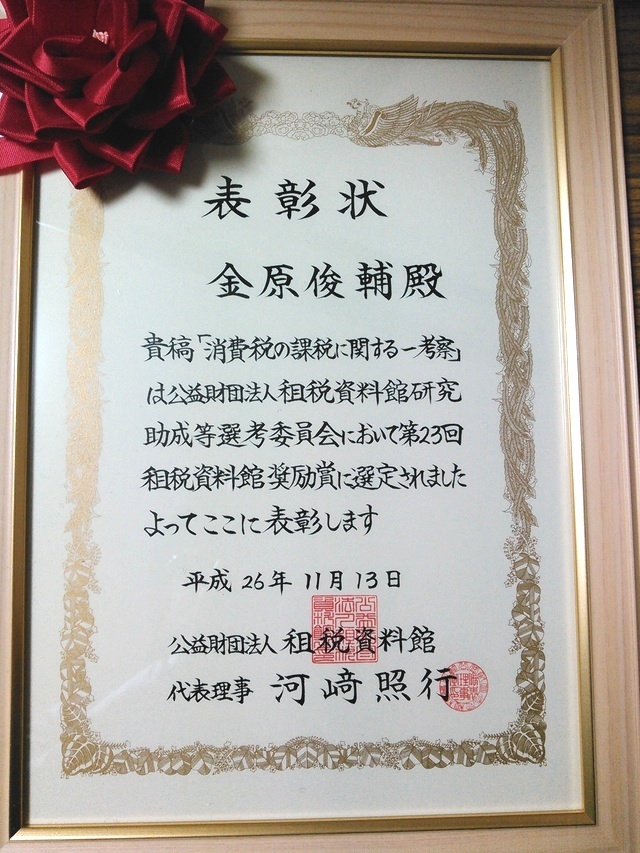 表彰状
金原俊輔殿
貴稿「消費税の課税に関する一考察」
は公益財団法人租税資料館研究
助成等選考委員会において第23回
租税資料館奨励賞に選定されました
よってここに表彰します
平成26年11月13日
公益財団法人租税資料館
代表理事 河﨑照行